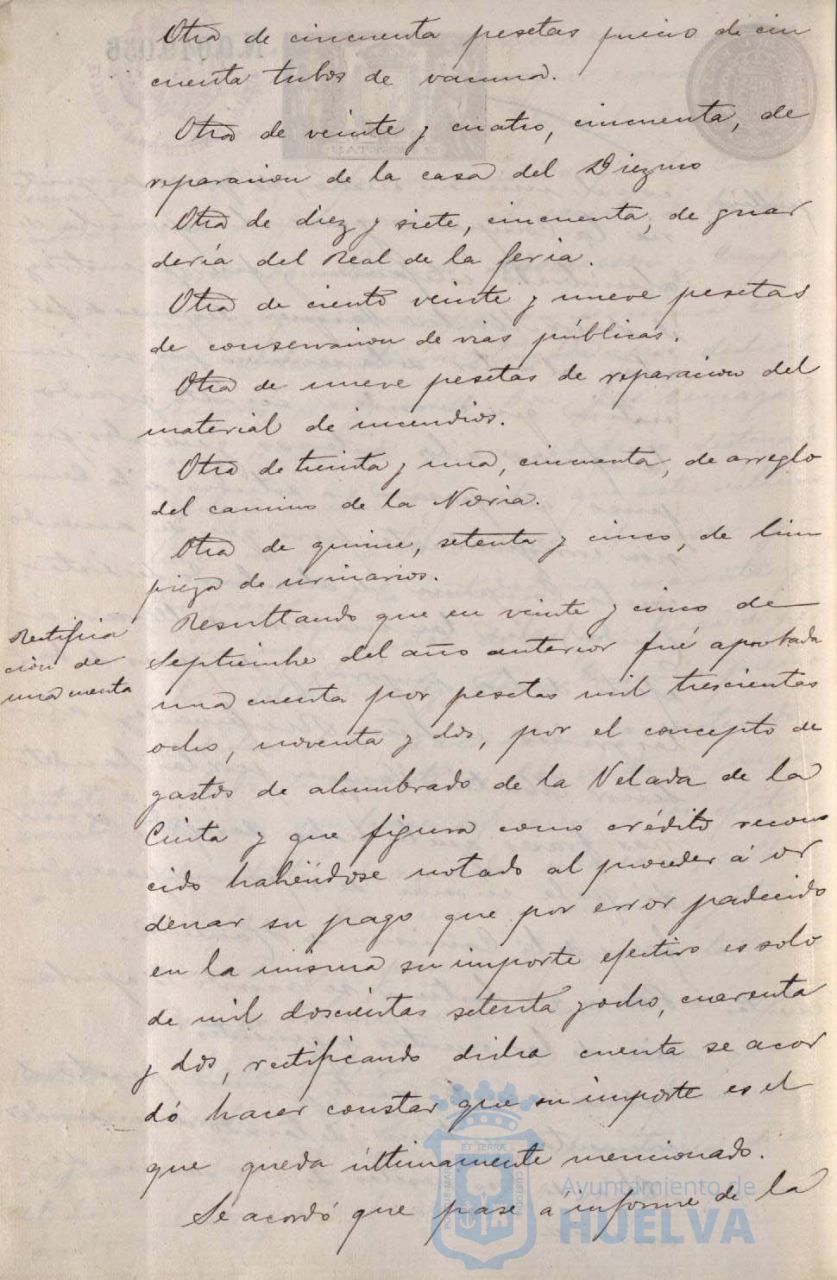 Otra de cincuenta pesetas precio de cin
cuenta tubos de vacuna.
Otra de veinte y cuatro, cincuenta, de
reparacion de la casa del Diezmo
Otra de diez y siete, cincuenta, de guar
dería del Real de la feria.
Otra de ciento veinte y nueve pesetas
de conservacion de vias públicas.
Otra de nueve pesetas de reparacion del
material de incendios.
Otra de treinta y una, cincuenta, de arreglo
del camino de la Noria.
Otra de quince, setenta y cinco, de lim
pieza de urinarios.
Rectifica
ción de
una cuenta
Resultando que en veinte y cinco de
Septiembre del año anterior fué aprobada
una cuenta por pesetas mil trescientas
ocho, noventa y dos, por el concepto de
gastos de alumbrado de la Velada de la
Cinta y que figura como crédito recono
cido habiéndose notado al proceder á or
denar su pago que por error padecido
en la misma su importe efectivo es solo
de mil doscientas setenta y ocho, cuarenta
y dos, rectificando dicha cuenta se acor
dó hacer constar que su importe es el
que queda últimamente mencionado.
Se acordó que pase á informe de la
Ayuntamiento de
HUELVA